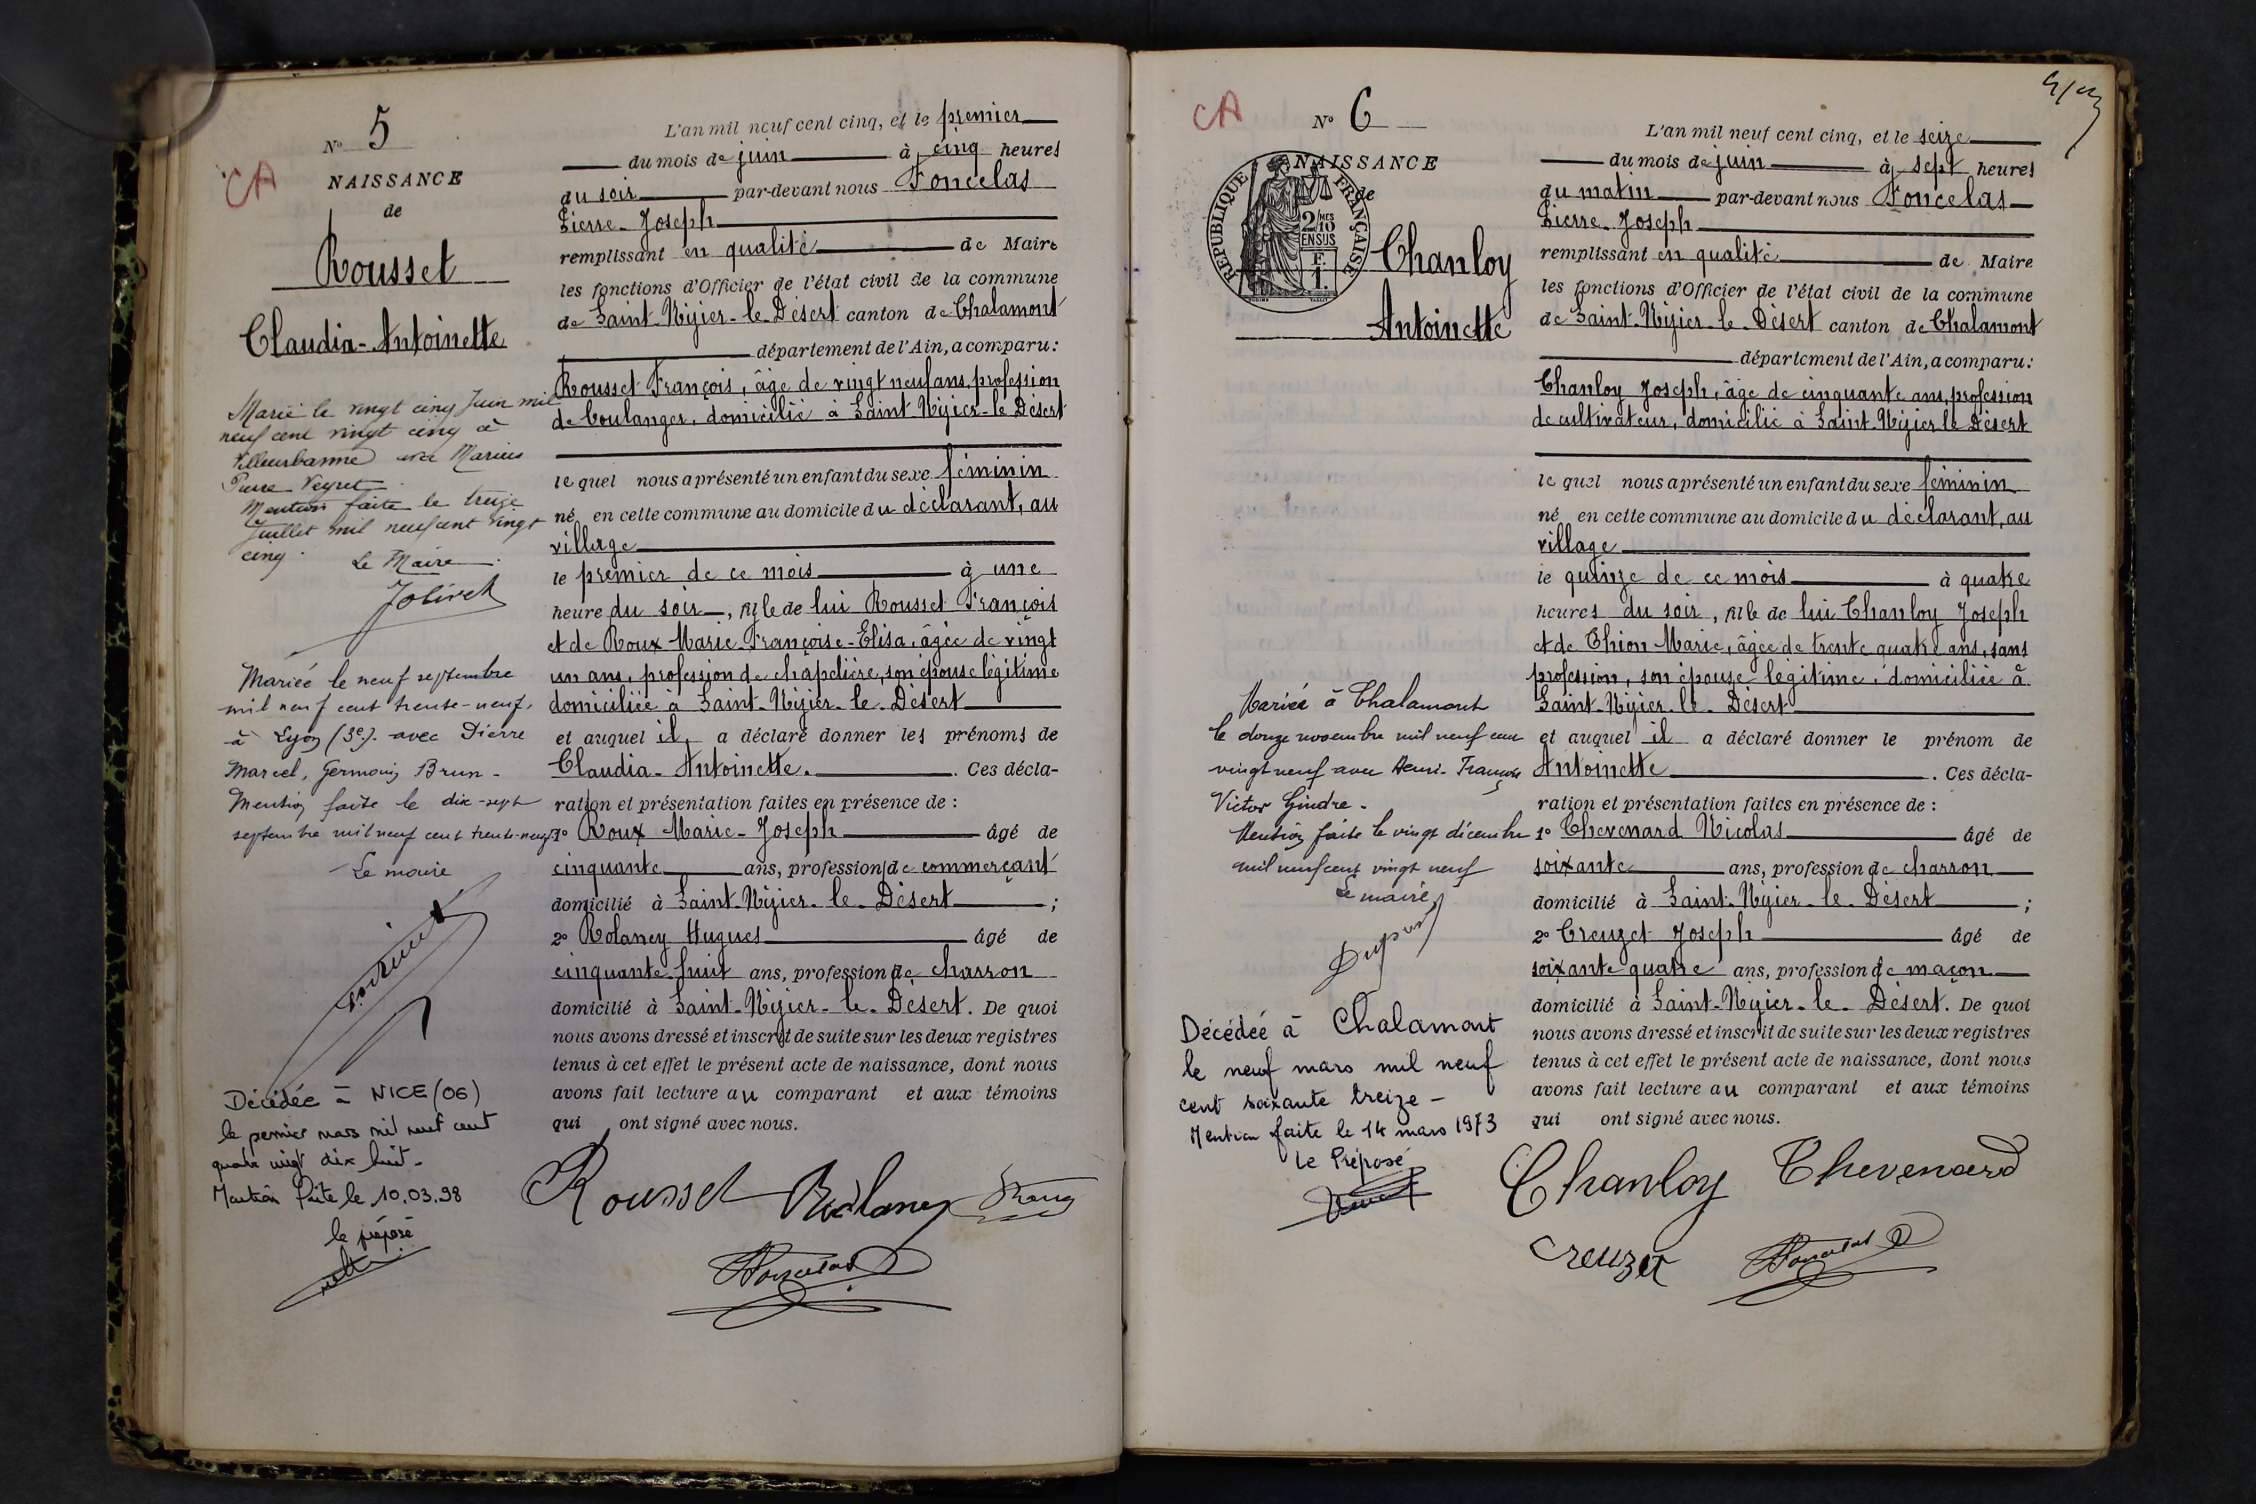 N° 5
CA
NAISSANCE
de
Rousset
Claudia-Antoinette
Marié le vingt cinq Juin mil
neuf cent vingt cinq à
Villeurbanne avec Marius
Pierre Veyret
Mention faite le treize
Juillet mil neuf cent vingt
cinq.
Le Maire
Mariée le neuf septembre
mil neuf cent trente-neuf,
à Lyon (3e). avec Pierre
Marcel, Germain Brun -
Mention faite le dix-sept
septembre mil neuf cent trente-neuf
Le maire
Décédée à NICE (06)
le premier mars mil neuf cent
quatre vingt dix huit -
Mention faite le 10.03.98
le préposé
L'an mil neuf cent cinq, et le premier
du mois de juin à cinq heures
du soir par-devant nous Foncelas
Pierre-Joseph
remplissant en qualité de Maire
les fonctions d'Officier de l'état civil de la commune
de Saint-Nizier-le-Désert canton de Chalamont
département de l'Ain, a comparu:
Rousset François, âgé de vingt neuf ans, profession
de boulanger, domicilié à Saint-Nizier-le Désert
le quel nous a présenté un enfant du sexe féminin
né en cette commune au domicile du déclarant, au
village
le premier de ce mois à une
heure du soir, fille de lui Rousset François
et de Roux Marie-Françoise-Elisa, âgée de vingt
un ans, profession de chapelière, son épouse légitime
domiciliée à Saint-Nizier-le-Désert
et auquel il a déclaré donner les prénoms de
Claudia-Antoinette. Ces décla-
ration et présentation faites en présence de :
1° Roux Marie-Joseph âgé de
cinquante ans, profession de commerçant
domicilié à Saint-Nizier-le-Désert ;
2° Rolaney Hugues âgé de
cinquante-huit ans, profession de charron
domicilié à Saint-Nizier-le-Désert. De quoi
nous avons dressé et inscrit de suite sur les deux registres
tenus à cet effet le présent acte de naissance, dont nous
avons fait lecture au comparant et aux témoins
qui ont signé avec nous.
Rousset Rolaney
Foncelas
CA
N° 6
NAISSANCE
de
REPUBLIQUE FRANÇAISE
2/10 MES
EN SUS
F.
1.
Chanloy
Antoinette
Mariée à Chalamont
le douze novembre mil neuf cent
vingt neuf avec Henri-François
Victor Gindre -
Mention faite le vingt décembre
mil neuf cent vingt neuf
Le maire
Décédée à Chalamont
le neuf mars mil neuf
cent soixante treize -
Mention faite le 14 mars 1973
Le Préposé
L'an mil neuf cent cinq, et le seize
du mois de juin à sept heures
du matin par-devant nous Foncelas
Pierre-Joseph
remplissant en qualité de Maire
les fonctions d'Officier de l'état civil de la commune
de Saint-Nizier-le-Désert canton de Chalamont
département de l'Ain, a comparu:
Chanloy Joseph, âgé de cinquante ans, profession
de cultivateur, domicilié à Saint-Nizier le Désert
le quel nous a présenté un enfant du sexe féminin
né en cette commune au domicile du déclarant, au
village
le quinze de ce mois à quatre
heures du soir, fille de lui Chanloy Joseph
et de Chion Marie, âgée de trente quatre ans, sans
profession, son épouse légitime, domiciliée à
Saint-Nizier-le-Désert
et auquel il a déclaré donner le prénom de
Antoinette. Ces décla-
ration et présentation faites en présence de :
1° Chevenard Nicolas âgé de
soixante ans, profession de charron
domicilié à Saint-Nizier-le-Désert ;
2° Creuzet Joseph âgé de
soixante quatre ans, profession de maçon
domicilié à Saint-Nizier-le-Désert. De quoi
nous avons dressé et inscrit de suite sur les deux registres
tenus à cet effet le présent acte de naissance, dont nous
avons fait lecture au comparant et aux témoins
qui ont signé avec nous.
Chanloy Chevenard
Creuzet Foncelas